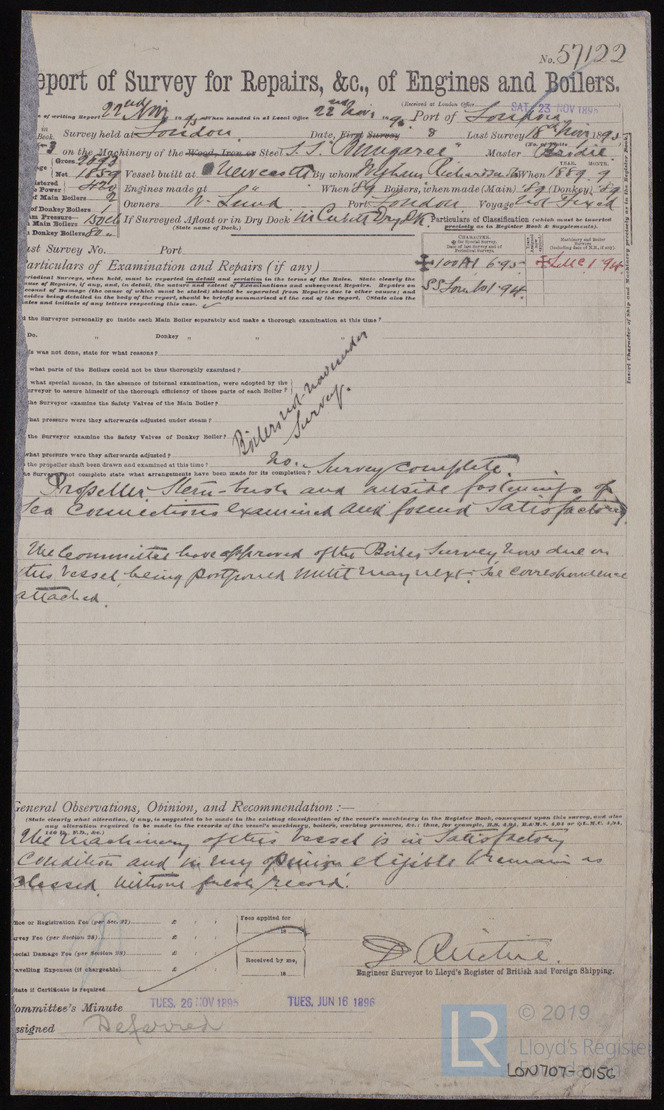 No. 57122
eport of Survey for Repairs, &c., of Engines and Boilers.
(Received at London Office
SAT. 23 NOV 1895
of writing Report 22nd Nov 1895 When handed in at Local Office 22nd Nov 1895 Port of London
Survey held at London Date, First Survey 8 Last Survey 18th Nov 1895
on the Machinery of the Wood, Iron or Steel S.S. Master
Gross 2693
Net 1859 Vessel built at Newcastle By whom Wigham Richardson & Co When 1889. 9
Engines made at When 89 Boilers, when made (Main) 89 (Donkey) 89
of Main Boilers 2 Owners W. Lund Port London Voyage Not Fixed
of Donkey Boilers 1
am Pressure—
Main Boilers 150 lb If Surveyed Afloat or in Dry Dock
(State name of Dock.)
Donkey Boilers 80
Particulars of Classification (which must be inserted precisely as in Register Book & Supplements).
ast Survey No. Port
CHARACTER.
100A1 6.95 LMC 1.94
SS Lon No1 94
Insert Character of Ship and Machinery precisely as in the Register Book.
articulars of Examination and Repairs (if any)
eriodical Surveys, when held, must be reported in detail and seriatim in the terms of the Rules. State clearly the
ause of Repairs, if any, and, in detail, the nature and extent of Examinations and subsequent Repairs. Repairs on
account of Damage (the cause of which must be stated) should be separated from Repairs due to other causes; and
besides being detailed in the body of the report, should be briefly summarised at the end of the report. State also the
dates and initials of any letters respecting this case.
d the Surveyor personally go inside each Main Boiler separately and make a thorough examination at this time?
Do. " Donkey " " "
is was not done, state for what reasons?
what parts of the Boilers could not be thus thoroughly examined?
what special means, in the absence of internal examination, were adopted by the
urveyor to assure himself of the thorough efficiency of those parts of each Boiler?
the Surveyor examine the Safety Valves of the Main Boiler?
hat pressure were they afterwards adjusted under steam?
the Surveyor examine the Safety Valves of Donkey Boiler?
what pressure were they afterwards adjusted?
Boilers not now under
Survey.
the propeller shaft been drawn and examined at this time? no.
the Survey not complete state what arrangements have been made for its completion? Survey complete.
Propeller, Stern-bush and outside fastenings of
Sea Connections examined and found Satisfactory.
The Committee have approved of the Boiler Survey now due on
this Vessel being postponed until May next. See correspondence
attached.
General Observations, Opinion, and Recommendation :—
(State clearly what alteration, if any, is suggested to be made in the existing classification of the vessel's machinery in the Register Book, consequent upon this survey, and also
any alteration required to be made in the records of the vessel's machinery, boilers, working pressures, &c.; thus, for example, B.S. 4,94, B.&M.S. 4,94 or L.M.C. 4,94,
140 lb., F.D., &c.)
The machinery of this Vessel is in Satisfactory
Condition and in my opinion eligible to remain as
classed without fresh record.
ffice or Registration Fee (per Sec. 27) £
urvey Fee (per Section 28) £
pecial Damage Fee (per Section 28) £
ravelling Expenses (if chargeable) £
Fees applied for
18
Received by me,
18
State if Certificate is required
D. Ritchie.
Engineer Surveyor to Lloyd's Register of British and Foreign Shipping.
ommittee's Minute TUES. 26 NOV 1895 TUES. JUN 16 1896
ssigned Deferred
LR © 2019
Lloyd's Register
Foundation
LON707-0156